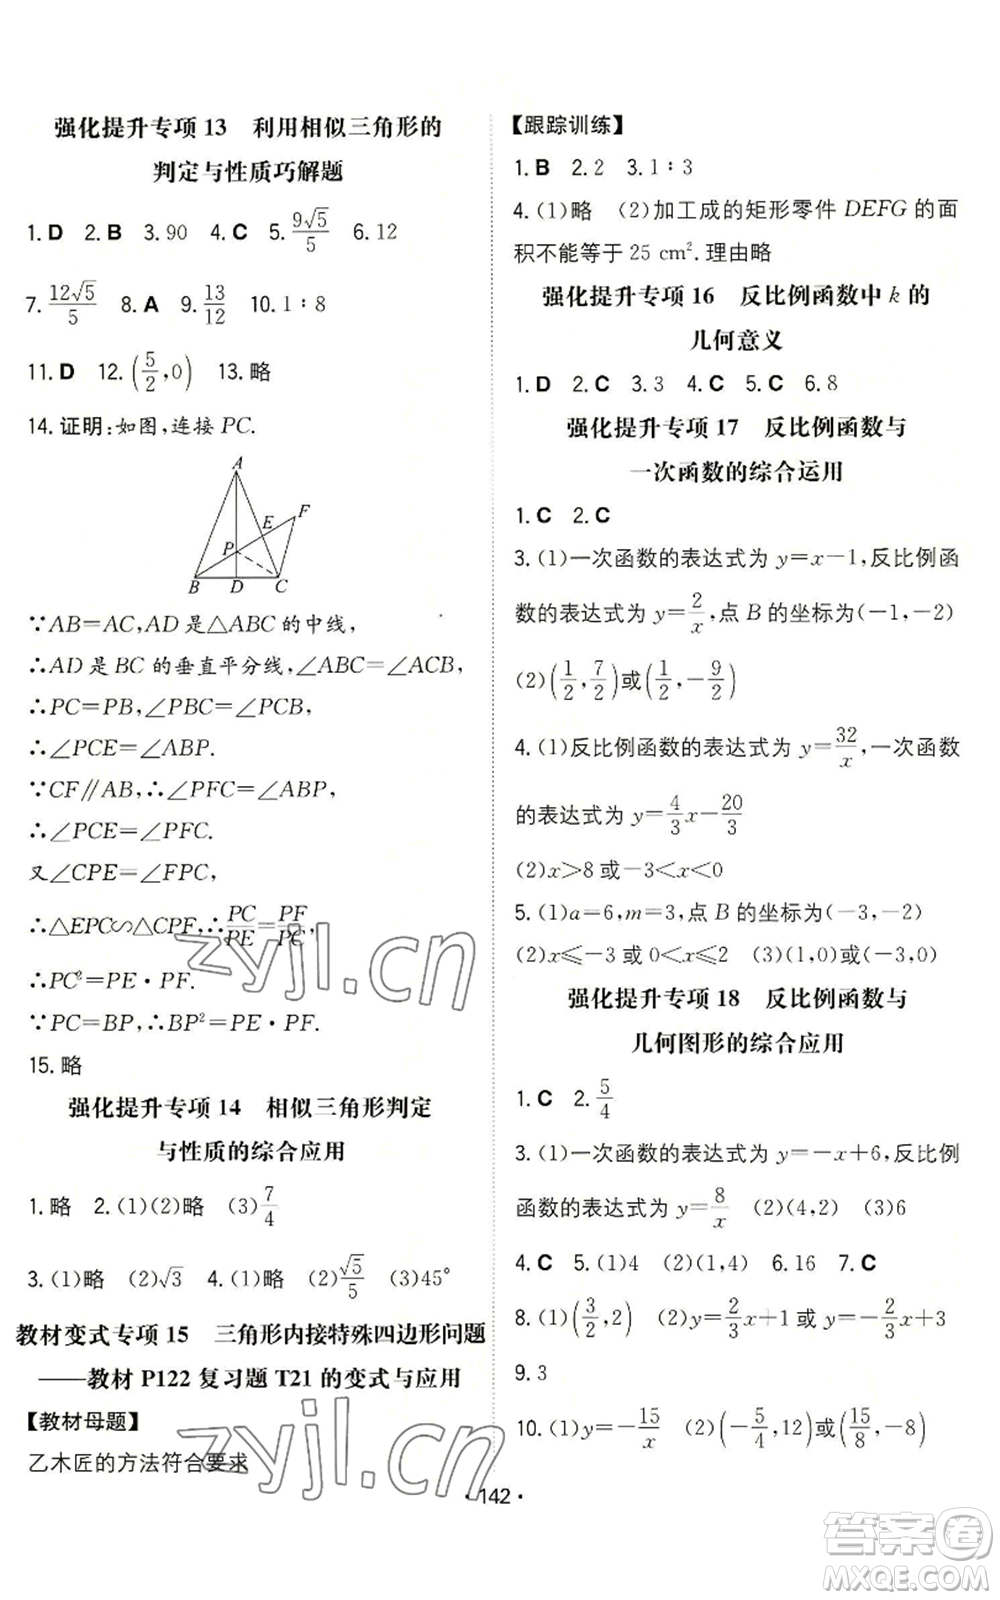 强化提升专项 13 利用相似三角形的
判定与性质巧解题
1. D 2. B 3. 90 4. C 5. 9√5/5 6. 12
7. 12√5/5 8. A 9. 13/12 10. 1∶8
11. D 12. (5/2,0) 13. 略
14. 证明:如图,连接 PC.
A
F
E
P
B D C
∵AB=AC,AD 是△ABC 的中线,
∴AD 是 BC 的垂直平分线,∠ABC=∠ACB,
∴PC=PB,∠PBC=∠PCB,
∴∠PCE=∠ABP.
∵CF∥AB,∴∠PFC=∠ABP,
∴∠PCE=∠PFC.
又∠CPE=∠FPC,
∴△EPC∽△CPF,∴PC/PE=PF/PC,
∴PC²=PE·PF.
∵PC=BP,∴BP²=PE·PF.
15. 略
强化提升专项 14 相似三角形判定
与性质的综合应用
1. 略 2. (1)(2)略 (3)7/4
3. (1)略 (2)√3 4. (1)略 (2)√5/5 (3)45°
教材变式专项 15 三角形内接特殊四边形问题
——教材 P122 复习题 T21 的变式与应用
【教材母题】
乙木匠的方法符合要求
【跟踪训练】
1. B 2. 2 3. 1∶3
4. (1)略 (2)加工成的矩形零件 DEFG 的面
积不能等于 25 cm². 理由略
强化提升专项 16 反比例函数中 k 的
几何意义
1. D 2. C 3. 3 4. C 5. C 6. 8
强化提升专项 17 反比例函数与
一次函数的综合运用
1. C 2. C
3. (1)一次函数的表达式为 y=x-1,反比例函
数的表达式为 y=2/x,点 B 的坐标为(-1,-2)
(2)(1/2,7/2)或(1/2,-9/2)
4. (1)反比例函数的表达式为 y=32/x,一次函数
的表达式为 y=4/3x-20/3
(2)x>8 或-3<x<0
5. (1)a=6,m=3,点 B 的坐标为(-3,-2)
(2)x≤-3 或 0<x≤2 (3)(1,0)或(-3,0)
强化提升专项 18 反比例函数与
几何图形的综合应用
1. C 2. 5/4
3. (1)一次函数的表达式为 y=-x+6,反比例
函数的表达式为 y=8/x (2)(4,2) (3)6
4. C 5. (1)4 (2)(1,4) 6. 16 7. C
8. (1)(3/2,2) (2)y=2/3x+1 或 y=-2/3x+3
9. 3
10. (1)y=-15/x (2)(-5/4,12)或(15/8,-8)
· 142 ·
zyjl.cn
zyjl.cn
答案卷
MXQE.COM